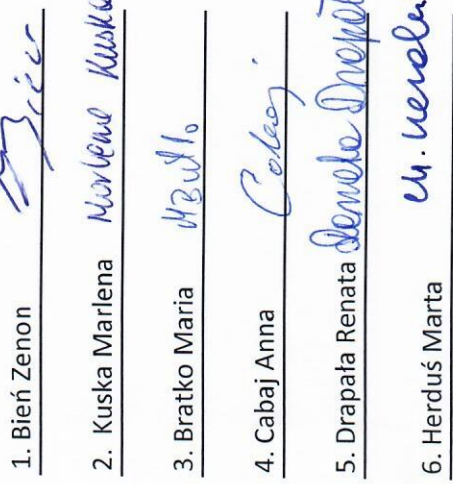 1. Bień Zenon
2. Kuska Marlena Marlena Kuska
3. Bratko Maria
4. Cabaj Anna Cabaj
5. Drapała Renata Renata Drapała
6. Herduś Marta